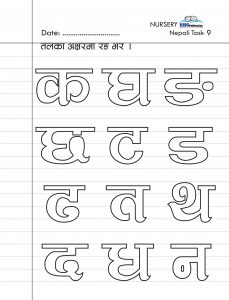 NURSERY
Date: ........................ Nepali Task- 9
तलका अक्षरमा रङ भर ।
क घ ङ
छ ट ड
ढ त थ
द ध न